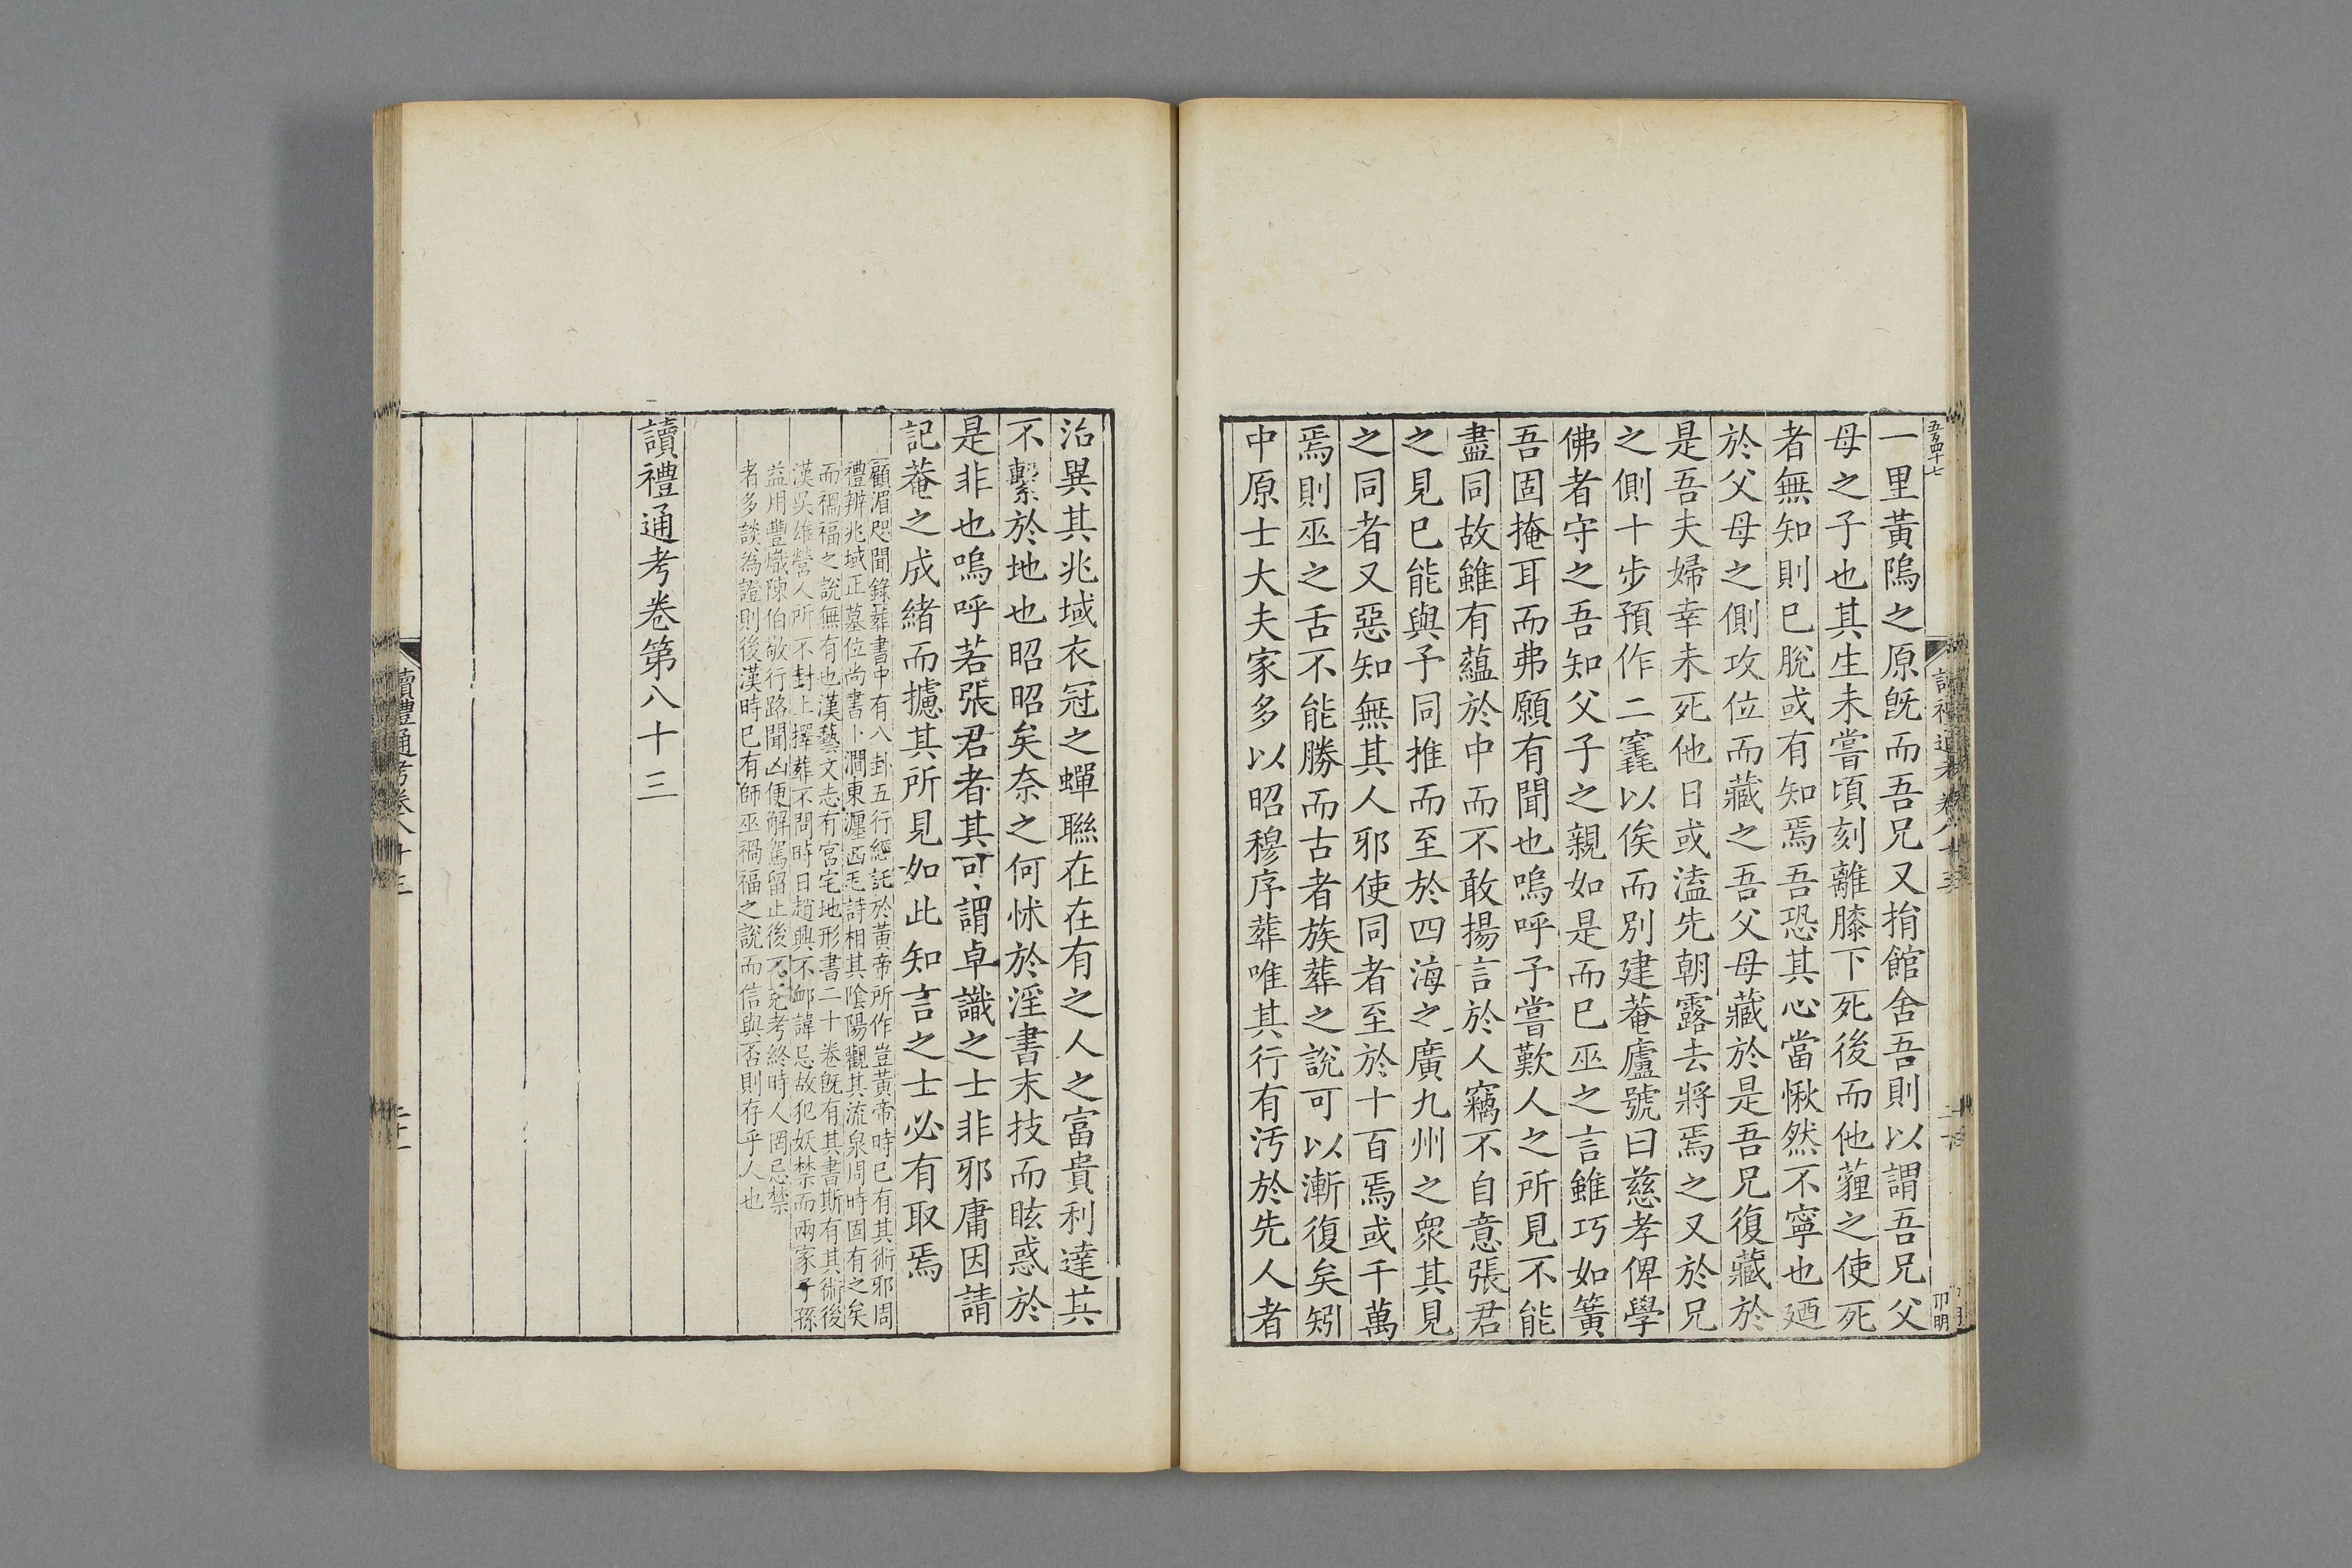 五百四十七
一里黃隖之原旣而吾兄又捐館舍吾則以謂吾兄父
母之子也其生未嘗頃刻離膝下死後而他薶之使死
者無知則已脫或有知焉吾恐其心當愀然不寧也廼
於父母之側攻位而藏之吾父母藏於是吾兄復藏於
是吾夫婦幸未死他日或溘先朝露去將焉之又於兄
之側十步預作二窀以俟而別建菴廬號曰慈孝俾學
佛者守之吾知父子之親如是而已巫之言雖巧如簧
吾固掩耳而弗願有聞也嗚呼予嘗歎人之所見不能
盡同故雖有蘊於中而不敢揚言於人竊不自意張君
之見已能與予同推而至於四海之廣九州之衆其見
之同者又惡知無其人邪使同者至於十百焉或千萬
焉則巫之舌不能勝而古者族葬之說可以漸復矣矧
中原士大夫家多以昭穆序葬唯其行有汚於先人者
治異其兆域衣冠之蟬聯在在有之人之富貴利達其
不繫於地也昭昭矣奈之何怵於淫書末技而眩惑於
是非也嗚呼若張君者其可謂卓識之士非邪庸因請
記菴之成緒而攄其所見如此知言之士必有取焉
顧湄咫聞錄葬書中有八卦五行經託於黃帝所作豈黃帝時已有其術邪周
禮辨兆域正墓位尚書卜澗東瀍西毛詩相其陰陽觀其流泉周時固有之矣
而禍福之說無有也漢藝文志有宮宅地形書二十卷旣有其書斯有其術後
漢吳雄營人所不封土擇葬不問時日趙興不卹諱忌故犯妖禁而兩家子孫
益用豐熾陳伯敬行路聞凶便解駕留止後不免考終時人罔忌禁
者多談為證則後漢時已有師巫禍福之說而信與否則存乎人也
讀禮通考卷第八十三
讀禮通考卷八十三